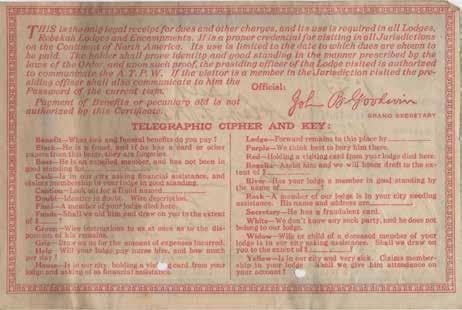 THIS is the only legal receipt for dues and other charges, and its use is required in all Lodges,
Rebekah Lodges and Encampments. It is a proper credential for visiting in all Jurisdictions
on the Continent of North America. Its use is limited to the date to which dues are shown to
be paid. The holder shall prove identity and good standing in the manner prescribed by the
laws of the Order, and upon such proof, the presiding officer of the Lodge visited is authorized
to communicate the A. T. P. W. If the visitor is a member in the Jurisdiction visited the pre-
siding officer shall also communicate to him the
Password of the current term.
Official:
Payment of Benefits or pecuniary aid is not
authorized by this Certificate.
John B Goodwin
GRAND SECRETARY
TELEGRAPHIC CIPHER AND KEY:
Benefit—What sick and funeral benefits do you pay?
Black—He is a fraud, and if he has a card or other
papers from this lodge, they are forgeries.
Boss—He is an expelled member, and has not been in
good standing for
Cash—Is in our city asking financial assistance, and
claims membership in your lodge in good standing.
Caution—Look out for a fraud named
Doubt—Identity in doubt. Wire description.
Find—A member of your lodge died here.
Funds—Shall we aid him and draw on you to the extent
of $
Green—Wire instructions to us at once as to the dis-
position of his remains.
Grip—Draw on us for the amount of expenses incurred.
Help—Will your lodge pay nurse hire, and how much
per day?
House—Is in our city, holding a visiting card from your
lodge and asking us for financial assistance.
Lodge—Forward remains to this place by
Purple—We think best to bury him there.
Red—Holding a visiting card from your lodge died here.
Regalia—Assist him and we will honor draft to the ex-
tent of $
River—Has your lodge a member in good standing by
the name of
Rock—A member of our lodge is in your city needing
assistance. His name and address are
Secretary—He has a fraudulent card.
White—We don't know any such party, and he does not
belong to our lodge.
Widow—Wife or child of a deceased member of your
lodge is in our city asking assistance. Shall we draw on
you to the extent of $
Yellow—Is in our city and very sick. Claims member-
ship in your lodge. Shall we give him attendance on
your account?